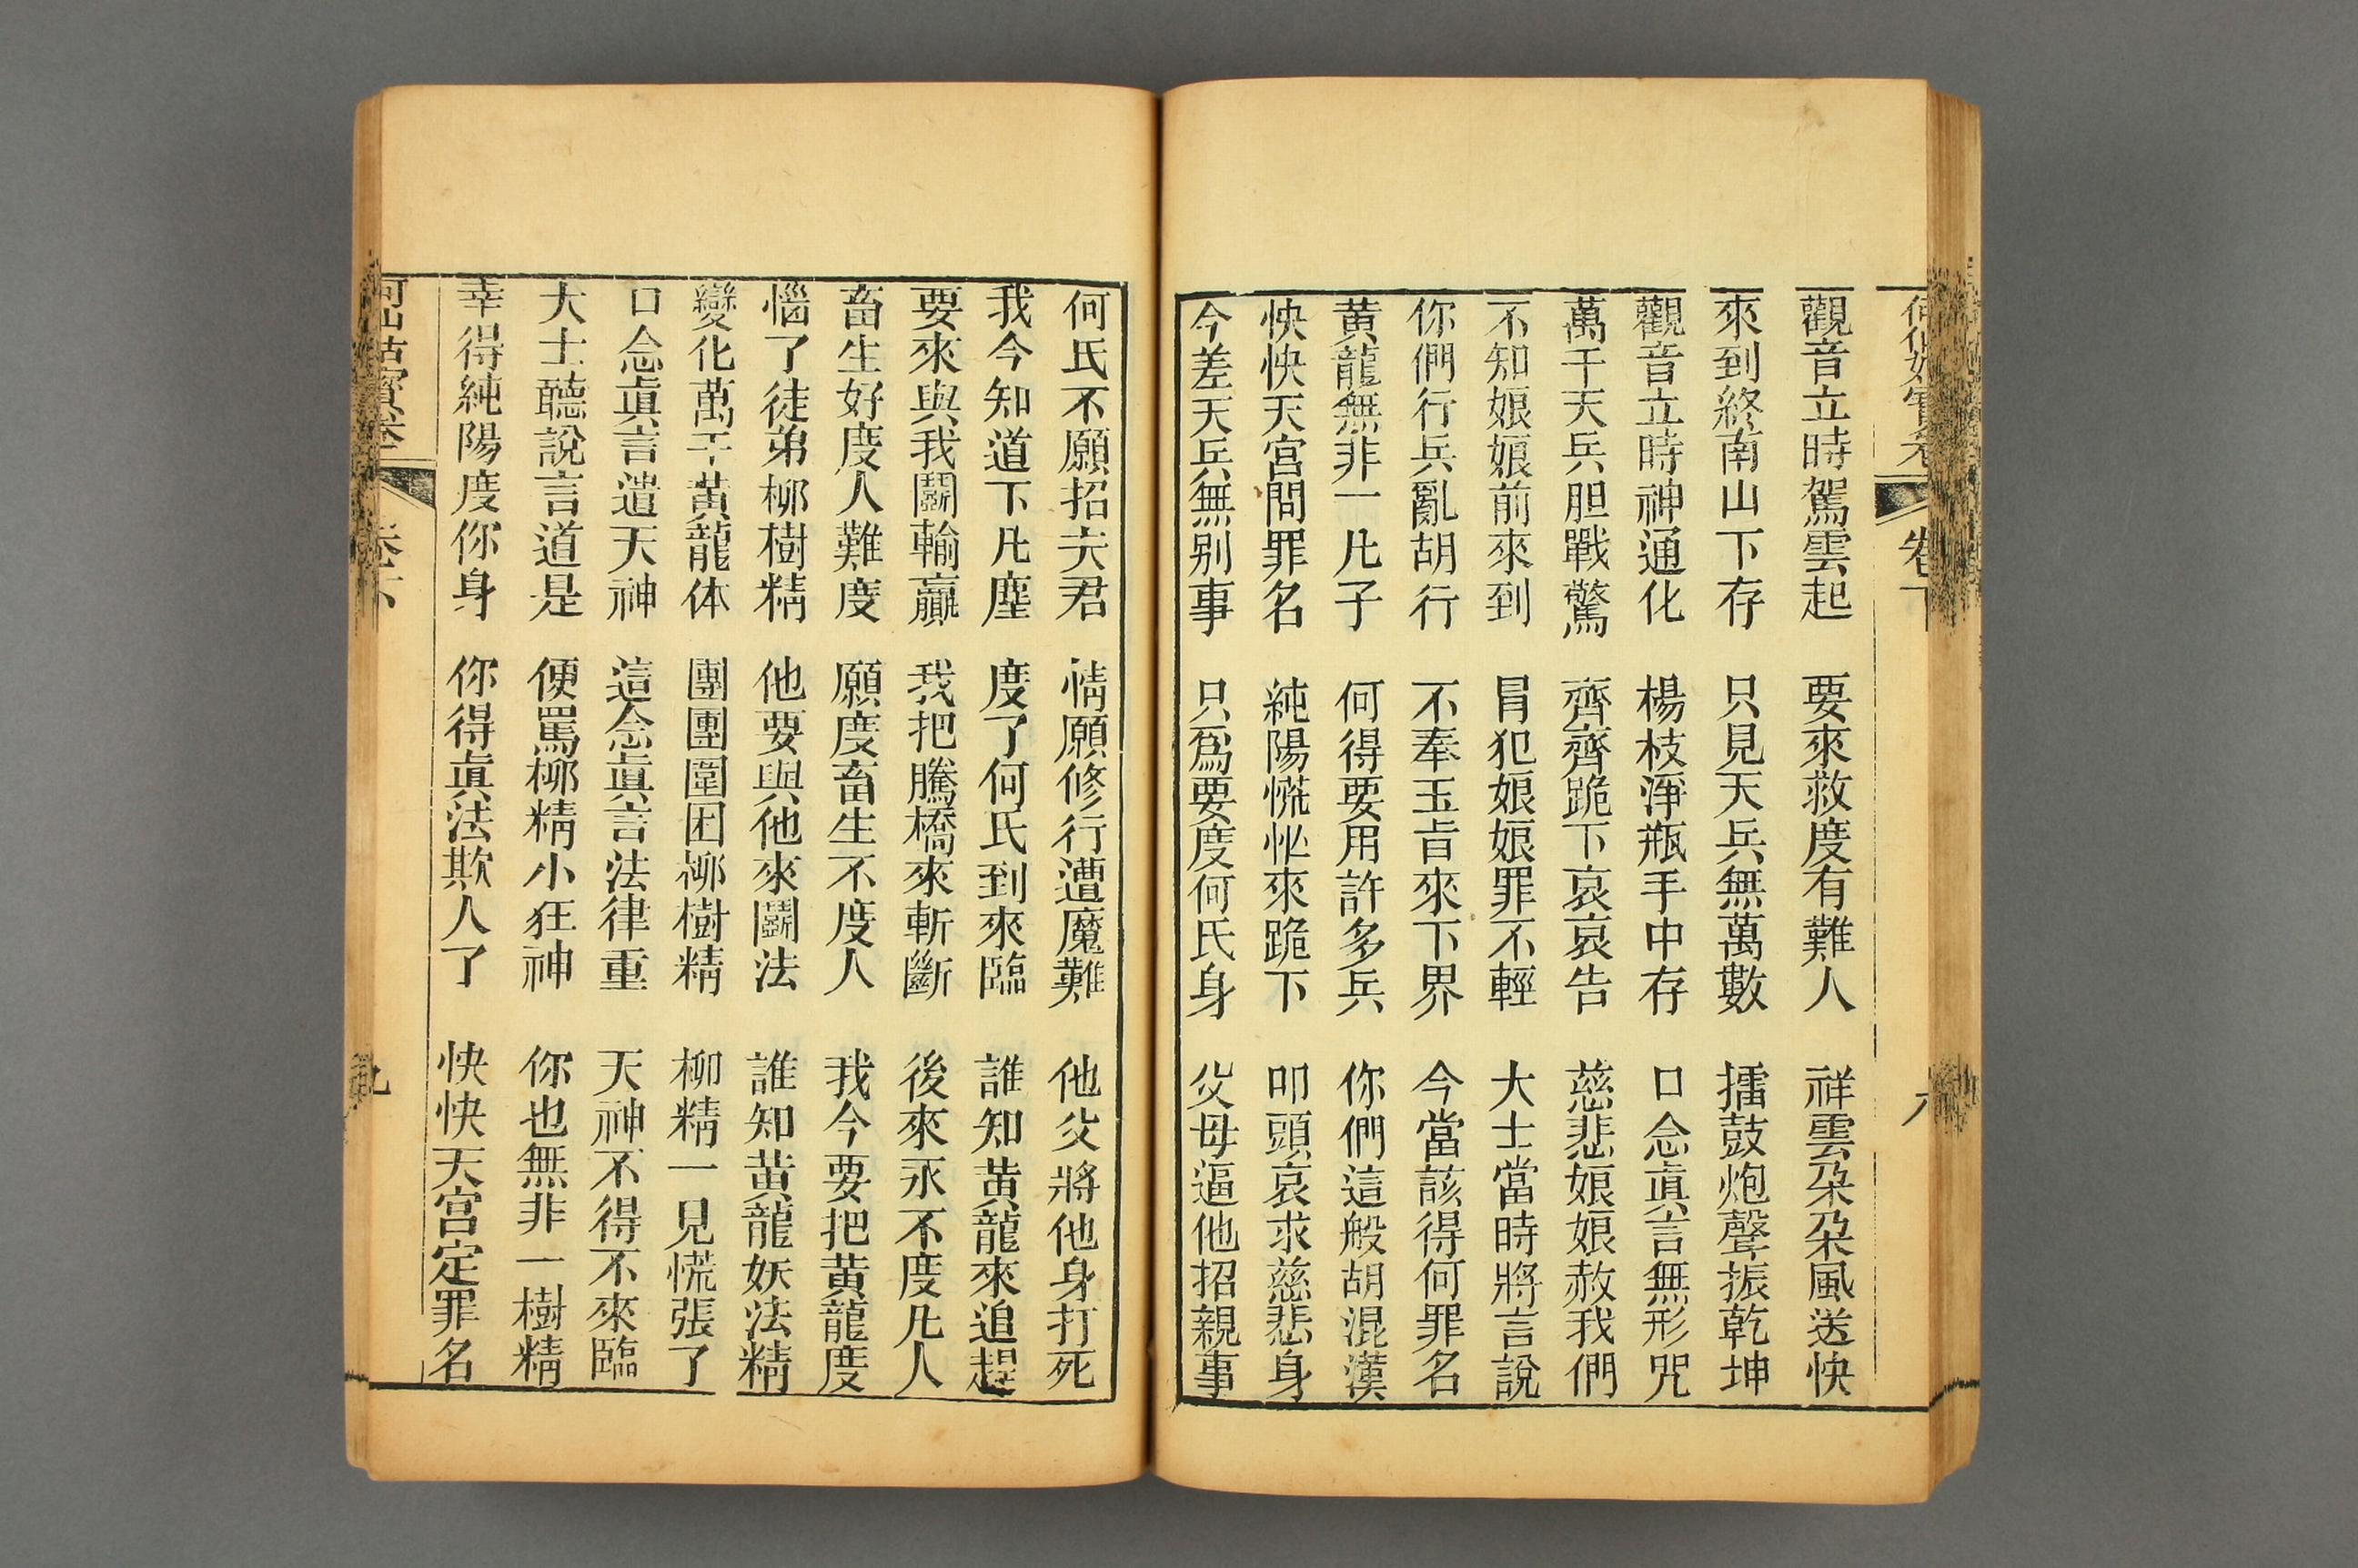 何仙姑寳卷 卷下 八
觀音立時駕雲起 要來救度有難人 祥雲朶朶風送快
來到終南山下存 只見天兵無萬數 擂鼓炮聲振乾坤
觀音立時神通化 楊枝淨瓶手中存 口念眞言無形咒
萬千天兵胆戰驚 齊齊跪下哀哀告 慈悲娘娘赦我們
不知娘娘前來到 冒犯娘娘罪不輕 大士當時將言說
你們行兵亂胡行 不奉玉旨來下界 今當該得何罪名
黄龍無非一凡子 何得要用許多兵 你們這般胡混漢
快快天宮問罪名 純陽慌忙來跪下 叩頭哀求慈悲身
今差天兵無别事 只爲要度何氏身 父母逼他招親事
何氏不願招夫君 情願修行遭魔難 他父將他身打死
我今知道下凡塵 度了何氏到來臨 誰知黄龍來追趕
要來與我鬬輸贏 我把騰橋來斬斷 後來永不度凡人
畜生好度人難度 願度畜生不度人 我今要把黄龍度
惱了徒弟柳樹精 他要與他來鬬法 誰知黄龍妖法精
變化萬千黄龍体 團團圍困柳樹精 柳精一見慌張了
口念眞言遣天神 這念眞言法律重 天神不得不來臨
大士聽說言道是 便罵柳精小狂神 你也無非一樹精
幸得純陽度你身 你得眞法欺人了 快快天宮定罪名
何仙姑寳卷 卷下 九